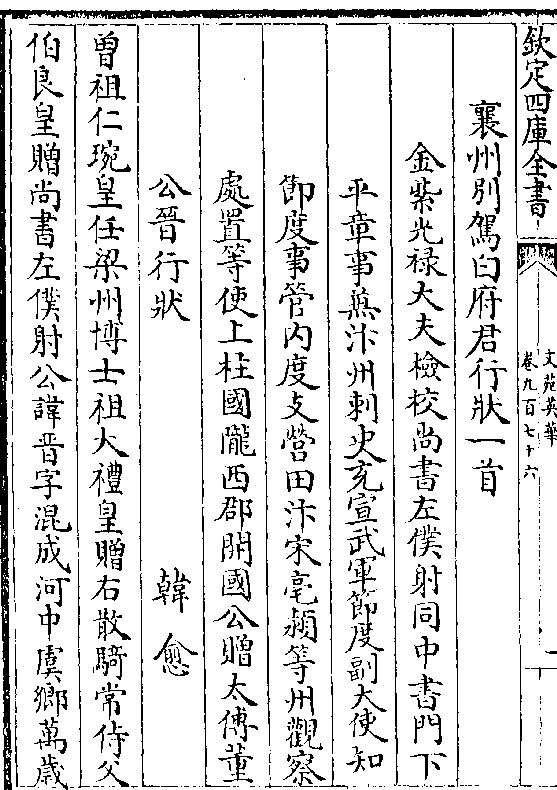 欽定四庫全書
文苑英華
卷九百七十六
一
襄州別駕白府君行狀一首
金紫光禄大夫檢校尚書左僕射同中書門下
平章事兼汴州刺史充宣武軍節度副大使知
節度事管内度支營田汴宋亳潁等州觀察
處置等使上柱國隴西郡開國公贈太傅董
公晉行狀　韓愈
曽祖仁琬皇任梁州博士祖大禮皇贈右散騎常侍父
伯良皇贈尚書左僕射公諱晋字混成河中虞鄉萬歲